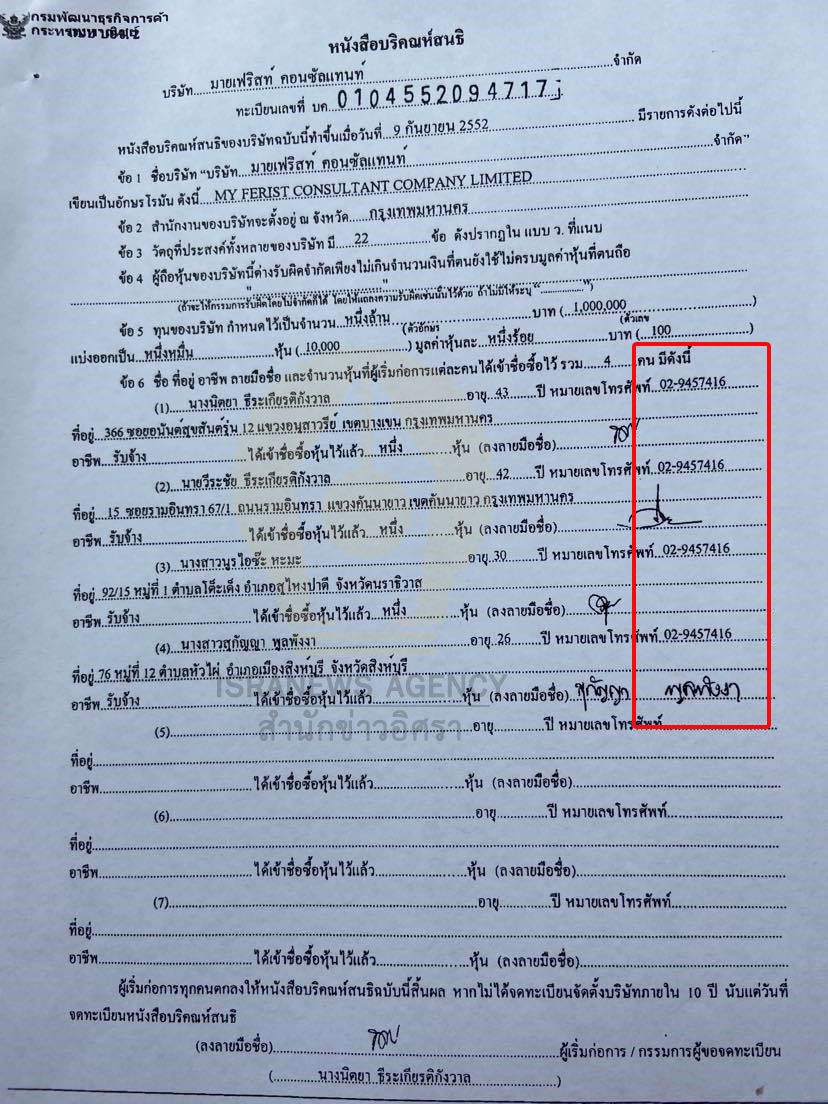 กรมพัฒนาธุรกิจการค้า
กระทรวงพาณิชย์
หนังสือบริคณห์สนธิ
บริษัท....มายเฟริสท์ คอนซัลแทนท์....จำกัด
ทะเบียนเลขที่ บค. 0104552094717
หนังสือบริคณห์สนธิของบริษัทฉบับนี้ทำขึ้นเมื่อวันที่ ..9 กันยายน 2552.... มีรายการดังต่อไปนี้
ข้อ 1 ชื่อบริษัท "บริษัท...มายเฟริสท์ คอนซัลแทนท์....จำกัด"
เขียนเป็นอักษรโรมัน ดังนี้ ....MY FERIST CONSULTANT COMPANY LIMITED....
ข้อ 2 สำนักงานของบริษัทจะตั้งอยู่ ณ จังหวัด....กรุงเทพมหานคร....
ข้อ 3 วัตถุที่ประสงค์ทั้งหลายของบริษัท มี....22....ข้อ ดังปรากฏใน แบบ ว. ที่แนบ
ข้อ 4 ผู้ถือหุ้นของบริษัทนี้ต่างรับผิดจำกัดเพียงไม่เกินจำนวนเงินที่ตนยังใช้ไม่ครบมูลค่าหุ้นที่ตนถือ
"...................."
(ถ้าจะให้กรรมการรับผิดโดยไม่จำกัดก็ได้ โดยให้แถลงความรับผิดเช่นนั้นไว้ด้วย ถ้าไม่มีให้ระบุ "................")
ข้อ 5 ทุนของบริษัท กำหนดไว้เป็นจำนวน หนึ่งล้าน....บาท (..1,000,000....)
(ตัวอักษร) (ตัวเลข)
แบ่งออกเป็น..หนึ่งหมื่น....หุ้น (..10,000....) มูลค่าหุ้นละ...หนึ่งร้อย....บาท (...100....)
ข้อ 6 ชื่อ ที่อยู่ อาชีพ ลายมือชื่อ และจำนวนหุ้นที่ผู้เริ่มก่อการแต่ละคนได้เข้าชื่อซื้อไว้ รวม....4....คน มีดังนี้
(1)....นางนิตยา ธีระเกียรติกังวาล....อายุ..43....ปี หมายเลขโทรศัพท์...02-9457416....
ที่อยู่...366 ซอยอนันต์สุขสันต์รุ่น 12 แขวงอนุสาวรีย์ เขตบางเขน กรุงเทพมหานคร
อาชีพ..รับจ้าง....ได้เข้าชื่อซื้อหุ้นไว้แล้ว...หนึ่ง....หุ้น (ลงลายมือชื่อ)....
(2)...นายวีระชัย ธีระเกียรติกังวาล....อายุ..42....ปี หมายเลขโทรศัพท์...02-9457416....
ที่อยู่...15 ซอยรามอินทรา 67/1 ถนนรามอินทรา แขวงคันนายาว เขตคันนายาว กรุงเทพมหานคร
อาชีพ..รับจ้าง....ได้เข้าชื่อซื้อหุ้นไว้แล้ว...หนึ่ง....หุ้น (ลงลายมือชื่อ)....
(3)...นางสาวนูรไอซ๊ะ หะมะ....อายุ..30....ปี หมายเลขโทรศัพท์...02-9457416....
ที่อยู่..92/15 หมู่ที่ 1 ตำบลโต๊ะเด็ง อำเภอสุไหงปาดี จังหวัดนราธิวาส
อาชีพ..รับจ้าง....ได้เข้าชื่อซื้อหุ้นไว้แล้ว...หนึ่ง....หุ้น (ลงลายมือชื่อ)....
(4)...นางสาวสุกัญญา พูลพังงา....อายุ..26....ปี หมายเลขโทรศัพท์...02-9457416....
ที่อยู่..76 หมู่ที่ 12 ตำบลหัวไผ่ อำเภอเมืองสิงห์บุรี จังหวัดสิงห์บุรี
ISRANEWS AGENCY
อาชีพ..รับจ้าง....ได้เข้าชื่อซื้อหุ้นไว้แล้ว....หุ้น (ลงลายมือชื่อ) สุกัญญา พูลพังงา
สำนักข่าวอิศรา
(5)....อายุ....ปี หมายเลขโทรศัพท์....
ที่อยู่....
อาชีพ....ได้เข้าชื่อซื้อหุ้นไว้แล้ว....หุ้น (ลงลายมือชื่อ)....
(6)....อายุ....ปี หมายเลขโทรศัพท์....
ที่อยู่....
อาชีพ....ได้เข้าชื่อซื้อหุ้นไว้แล้ว....หุ้น (ลงลายมือชื่อ)....
(7)....อายุ....ปี หมายเลขโทรศัพท์....
ที่อยู่....
อาชีพ....ได้เข้าชื่อซื้อหุ้นไว้แล้ว....หุ้น (ลงลายมือชื่อ)....
ผู้เริ่มก่อการทุกคนตกลงให้หนังสือบริคณห์สนธิฉบับนี้สิ้นผล หากไม่ได้จดทะเบียนจัดตั้งบริษัทภายใน 10 ปี นับแต่วันที่
จดทะเบียนหนังสือบริคณห์สนธิ
(ลงลายมือชื่อ)....ผู้เริ่มก่อการ / กรรมการผู้ขอจดทะเบียน
(....นางนิตยา ธีระเกียรติกังวาล....)